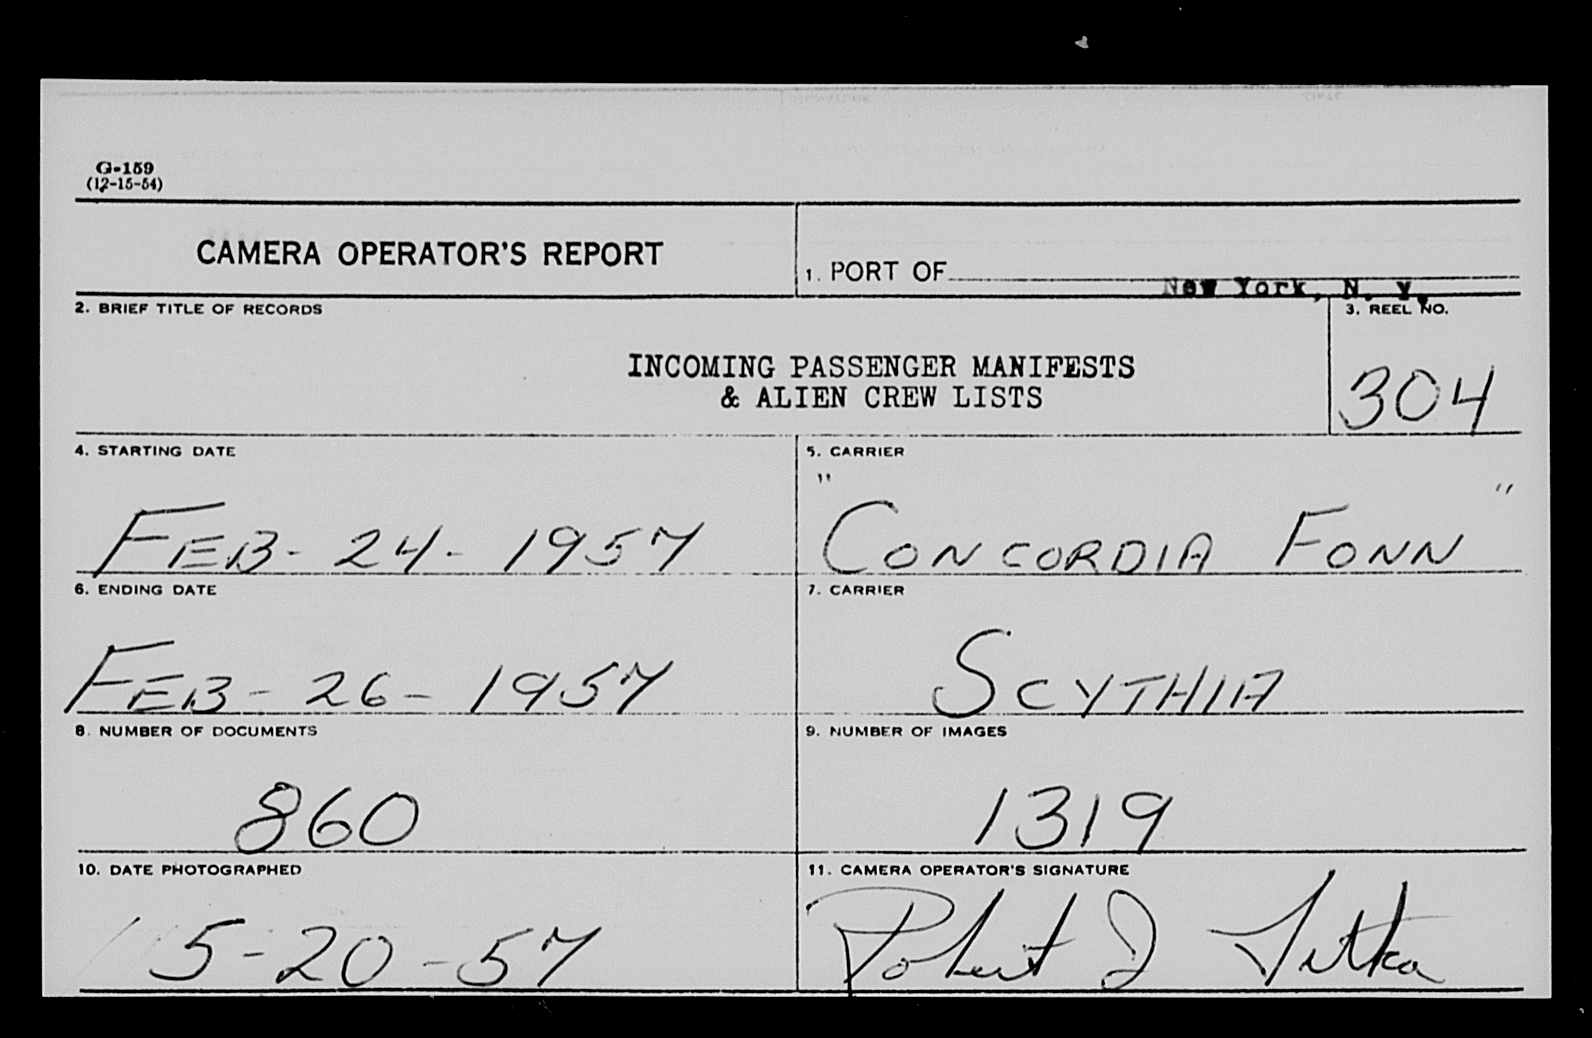 G-159
(12-15-54)
CAMERA OPERATOR'S REPORT
1. PORT OF New York, N. Y.
2. BRIEF TITLE OF RECORDS
INCOMING PASSENGER MANIFESTS
& ALIEN CREW LISTS
3. REEL NO.
304
4. STARTING DATE
FEB-24-1957
5. CARRIER
"CONCORDIA FONN"
6. ENDING DATE
FEB-26-1957
7. CARRIER
SCYTHIA
8. NUMBER OF DOCUMENTS
860
9. NUMBER OF IMAGES
1319
10. DATE PHOTOGRAPHED
5-20-57
11. CAMERA OPERATOR'S SIGNATURE
Robert J